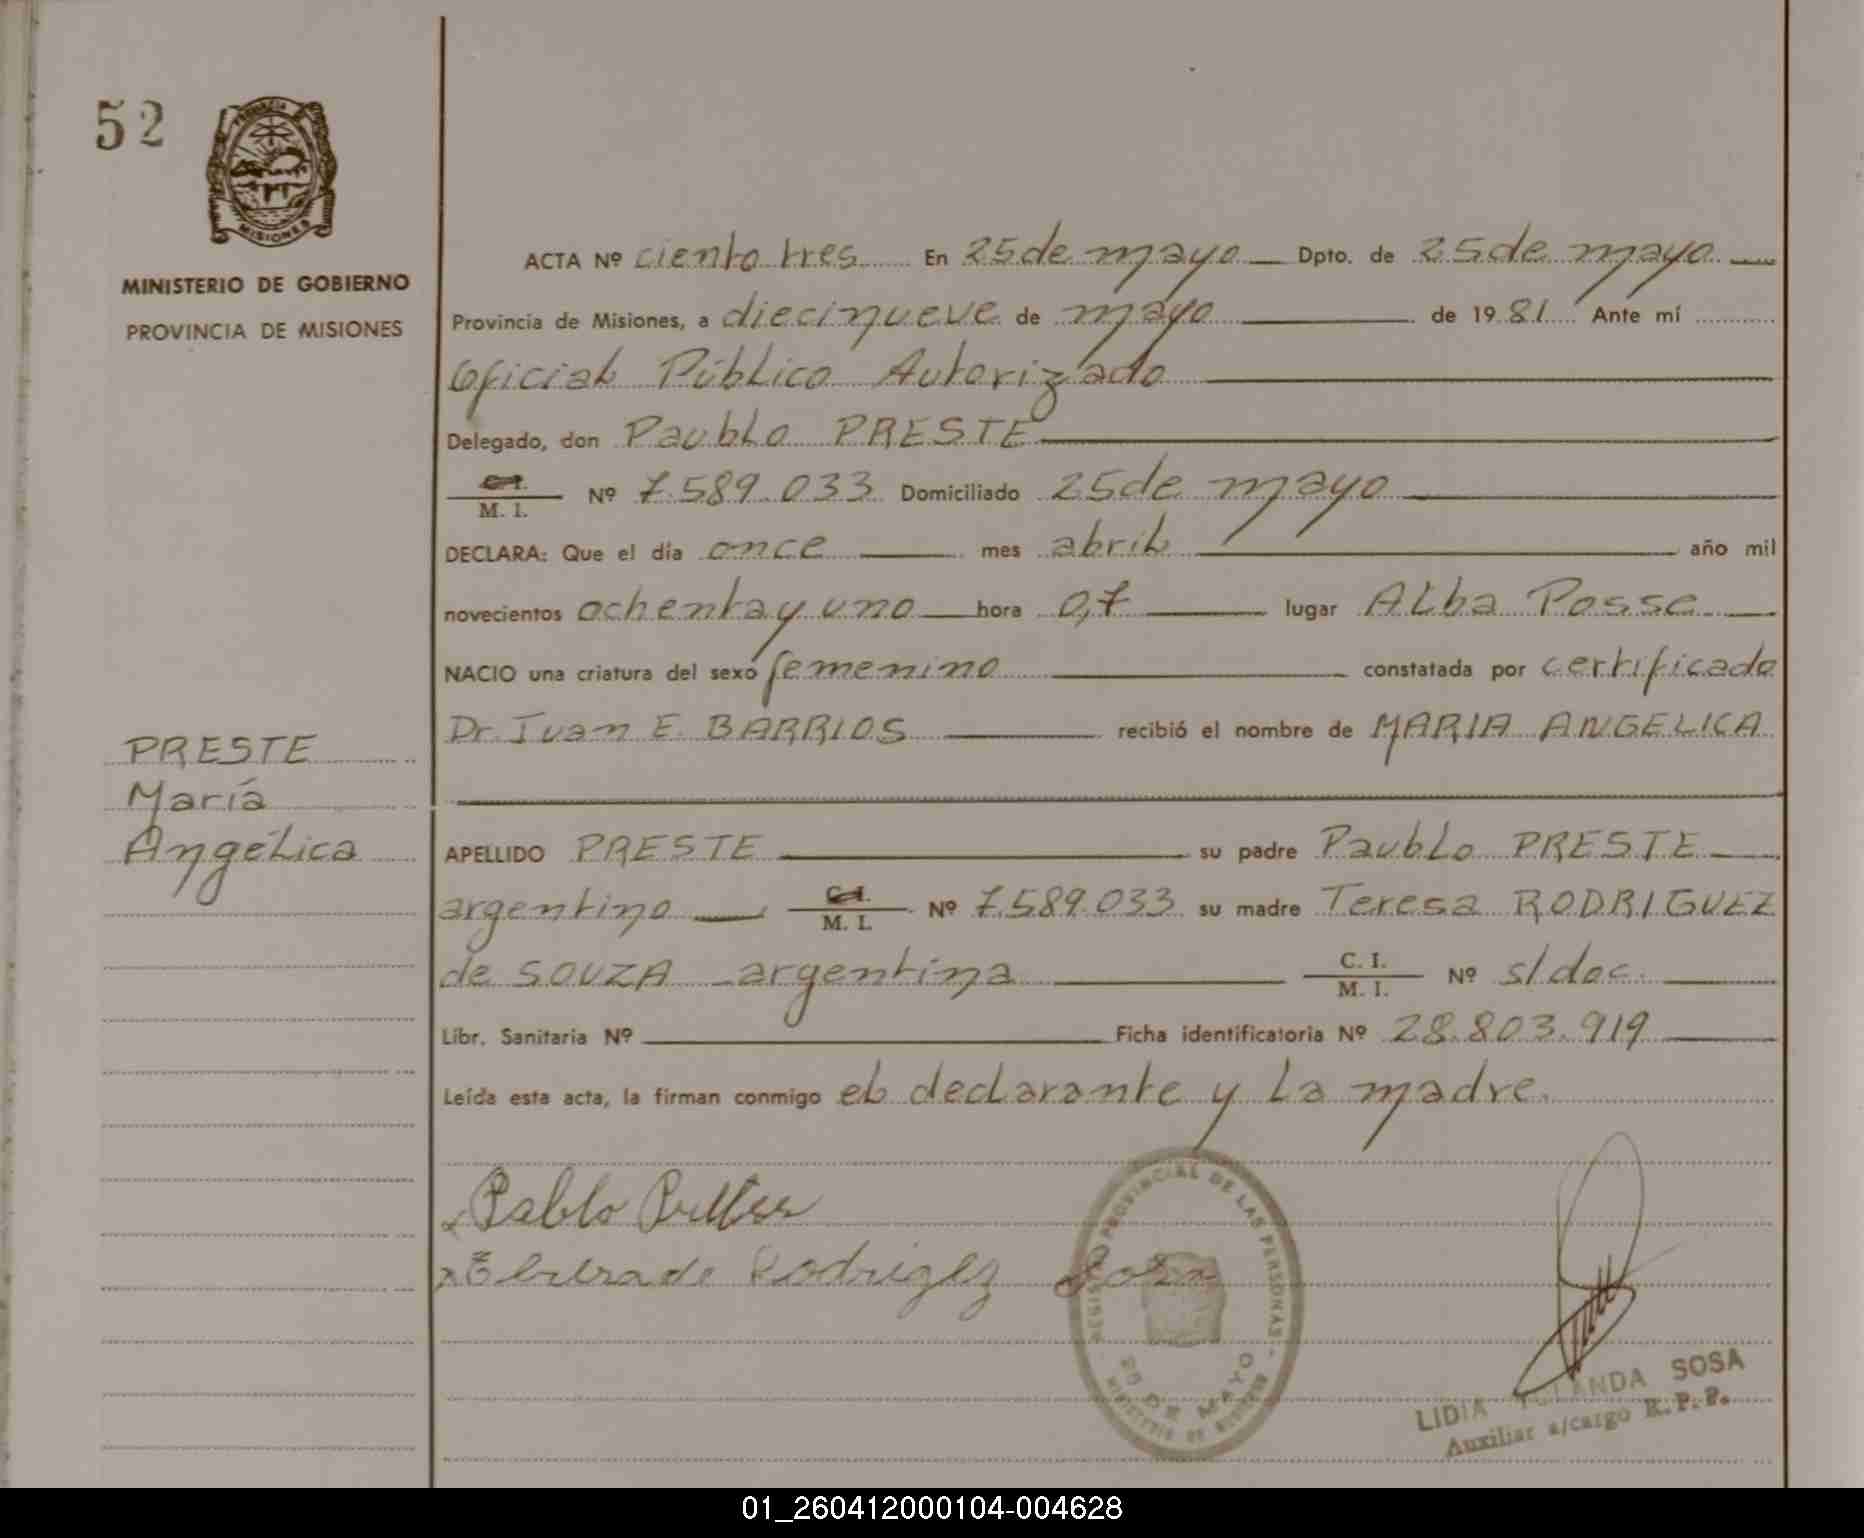 52
PROVINCIA DE
MISIONES
MINISTERIO DE GOBIERNO
PROVINCIA DE MISIONES
ACTA Nº ciento tres En 25 de mayo Dpto. de 25 de mayo
Provincia de Misiones, a diecinueve de mayo de 1981 Ante mí
Oficial Público Autorizado
Delegado, don Paublo PRESTE
C. I.
M. I. Nº 7.589.033 Domiciliado 25 de mayo
DECLARA: Que el día once mes abril año mil
novecientos ochenta y uno hora 0,7 lugar Alba Posse
NACIO una criatura del sexo femenino constatada por certificado
Dr. Juan E. BARRIOS recibió el nombre de MARIA ANGELICA
PRESTE
María
Angélica
APELLIDO PRESTE su padre Paublo PRESTE
argentino C. I. M. I. Nº 7.589.033 su madre Teresa RODRIGUEZ
de SOUZA argentina C. I. M. I. Nº s/doc.
Libr. Sanitaria Nº Ficha identificatoria Nº 28.803.919
Leída esta acta, la firman conmigo el declarante y la madre.
Pablo
Rodrigez
REGISTRO PROVINCIAL DE LAS PERSONAS
25 DE MAYO
MINISTERIO DE GOBIERNO
LIDIA YOLANDA SOSA
Auxiliar a/cargo R. P. P.
01_260412000104-004628